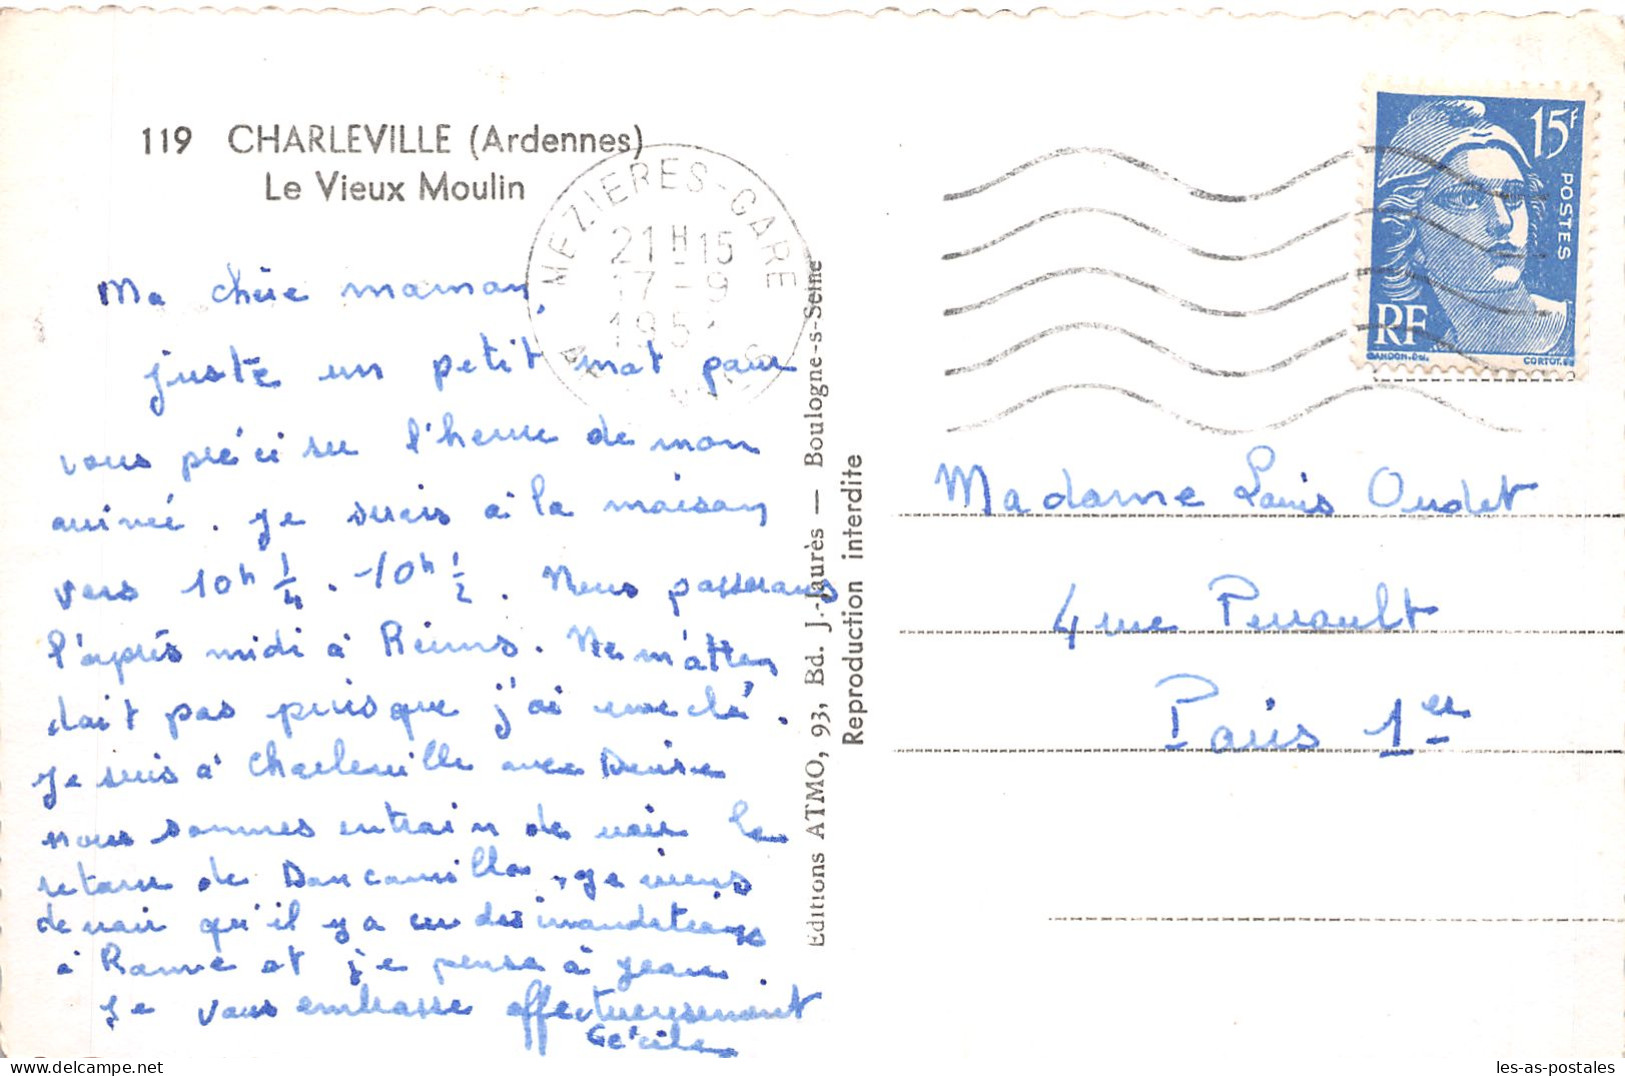 119 CHARLEVILLE (Ardennes)
Le Vieux Moulin
MEZIERES-GARE
21H15
17-9
195
Ma chère maman,
juste un petit mot pour
vous préciser l'heure de mon
arrivée. Je serais à la maison
vers 10h 1/4 - 10h 1/2. Nous passerons
l'après midi à Reims. Ne m'atten
dait pas puisque j'ai une clé.
Je suis à Charleville avec Denise
nous sommes entrain de voir le
retour de Don Camillo. Je viens
de voir qu'il y a eu des inondations
à Rome et je pense à Jean
Je vous embrasse affectueusement
Cécile
Editions ATMO, 93, Bd. J.-Jaurès — Boulogne-s-Seine
Reproduction interdite
15F
POSTES
RF
GANDON.Del.
CORTOT.
Madame Louis Oudet
4 rue Perrault
Paris 1er
les-as-postales